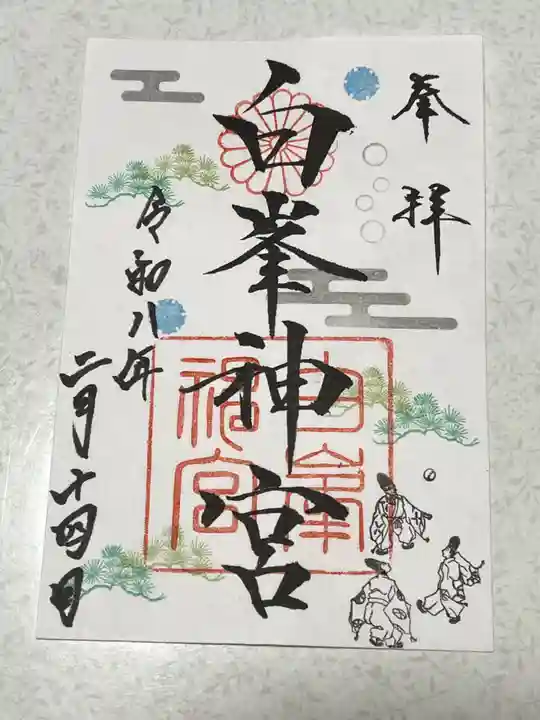 奉拝
白峯神宮
白峯
神宮
令和八年
二月十四日